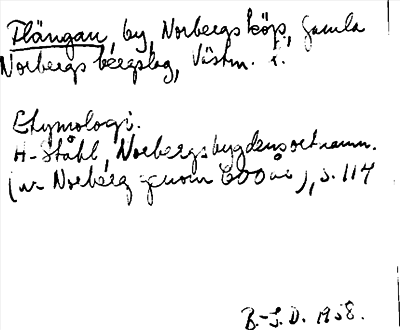 Flängan, by, Norbergs köp, Gamla
Norbergs bergslag, Västm. l.
Etymologi.
H. Ståhl, Norbergsbygdens ortnamn.
(ur Norberg genom 600 år), s. 114
B.-S. D. 1958.